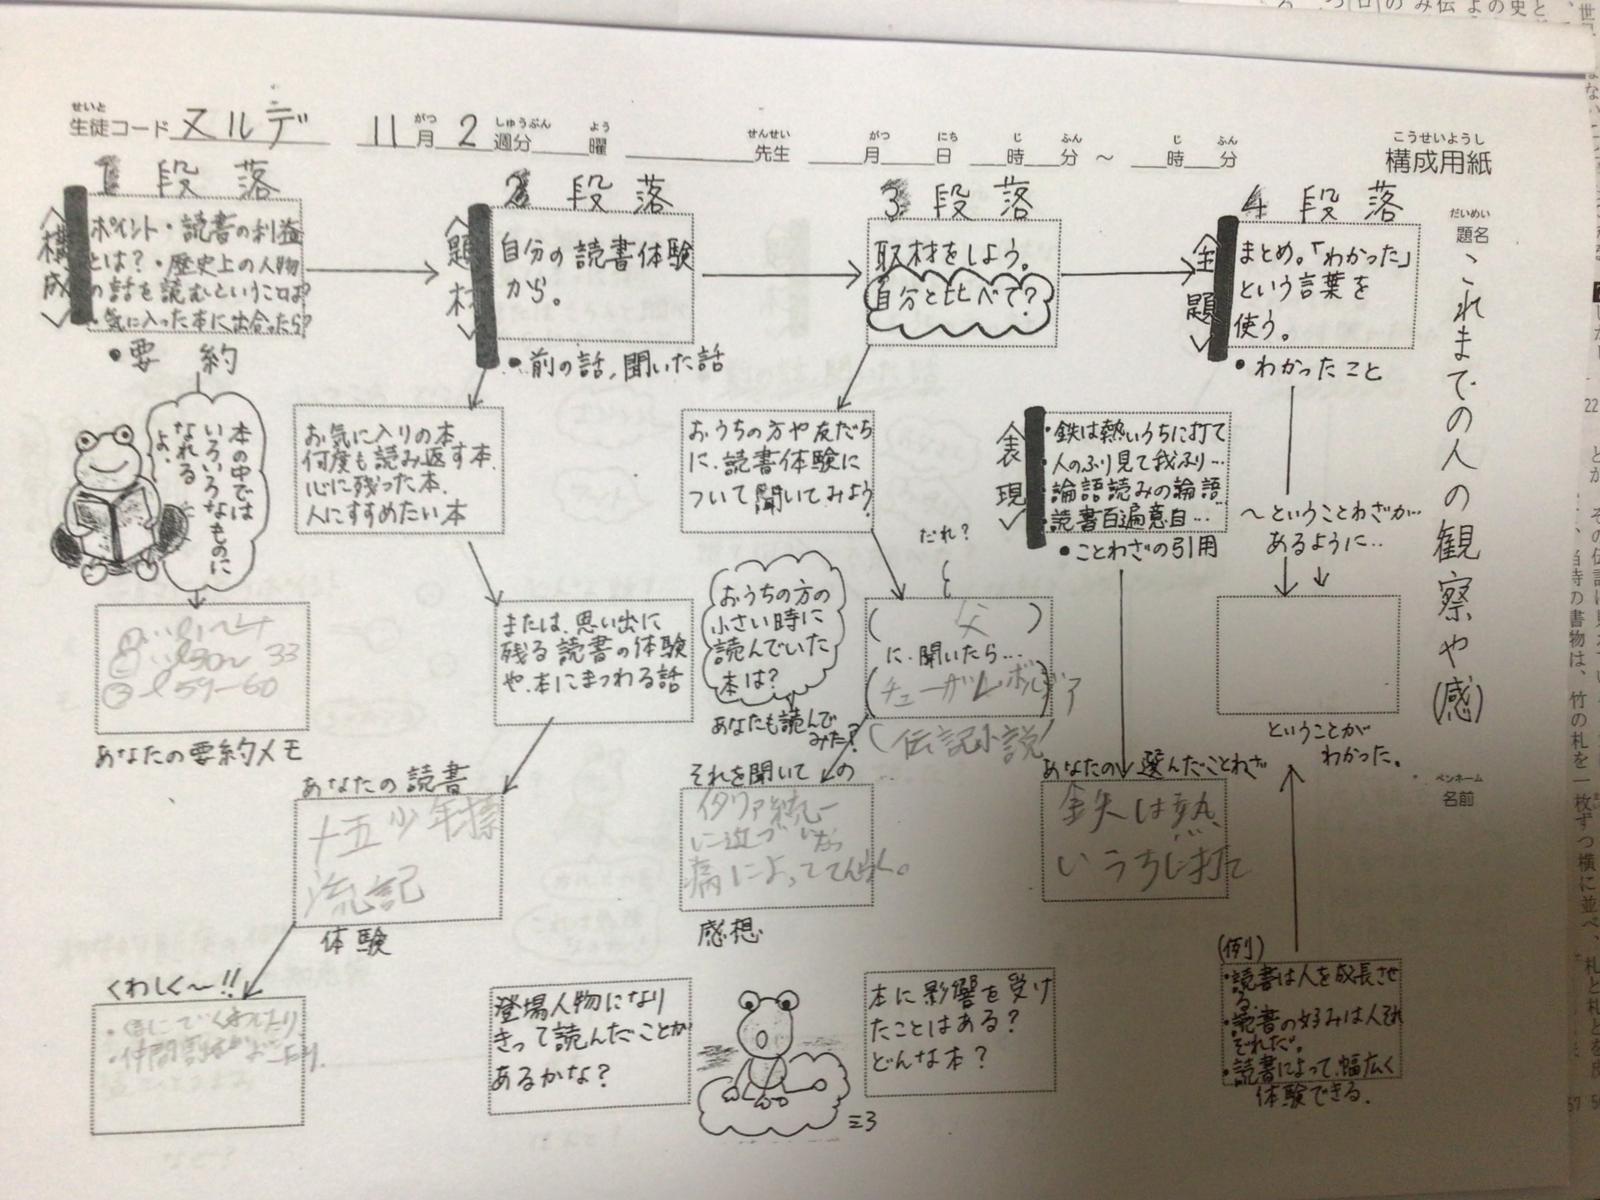 せいと
生徒コード ヌルデ 11月 2週分 曜 先生 月 日 時 分 ～ 時 分
がつ しゅうぶん よう せんせい がつ にち じ ふん じ ふん
こうせいようし
構成用紙
だいめい
題名
これまでの人の観察や(感)
ペンネーム
名前
1段落
構成
ポイント・読書の利益
とは?・歴史上の人物
の話を読むということは?
・気に入った本に出合ったら?
・要約
本の中では
いろいろなものに
なれる
よ。
あなたの要約メモ
2段落
題材
自分の読書体験
から。
・前の話,聞いた話
お気に入りの本
何度も読み返す本、
心に残った本、
人にすすめたい本
または、思い出に
残る読書の体験
や、本にまつわる話
あなたの読書
十五少年漂
流記
体験
くわしく～!!
登場人物になり
きって読んだことが
あるかな?
3段落
取材をしよう。
自分と比べて?
おうちの方や友だち
に、読書体験に
ついて聞いてみよう
だれ?
と
おうちの方の
小さい時に
読んでいた
本は?
あなたも読んで
みた?
( 父 )
に、聞いたら…
(伝記小説)
それを聞いての
感想
本に影響を受け
たことはある?
どんな本?
4段落
主題
まとめ。「わかった」
という言葉を
使う。
・わかったこと
表現
・鉄は熱いうちに打て
・人のふり見て我ふり…
・論語読みの論語
・読書百遍意自…
・ことわざの引用
～ということわざが
あるように…
ということが
わかった。
あなたの選んだことわざ
鉄は熱
いうちに打て
(例)
・読書は人を成長させ
る。
・読書の好みは人それ
ぞれだ。
・読書によって、幅広く
体験できる.